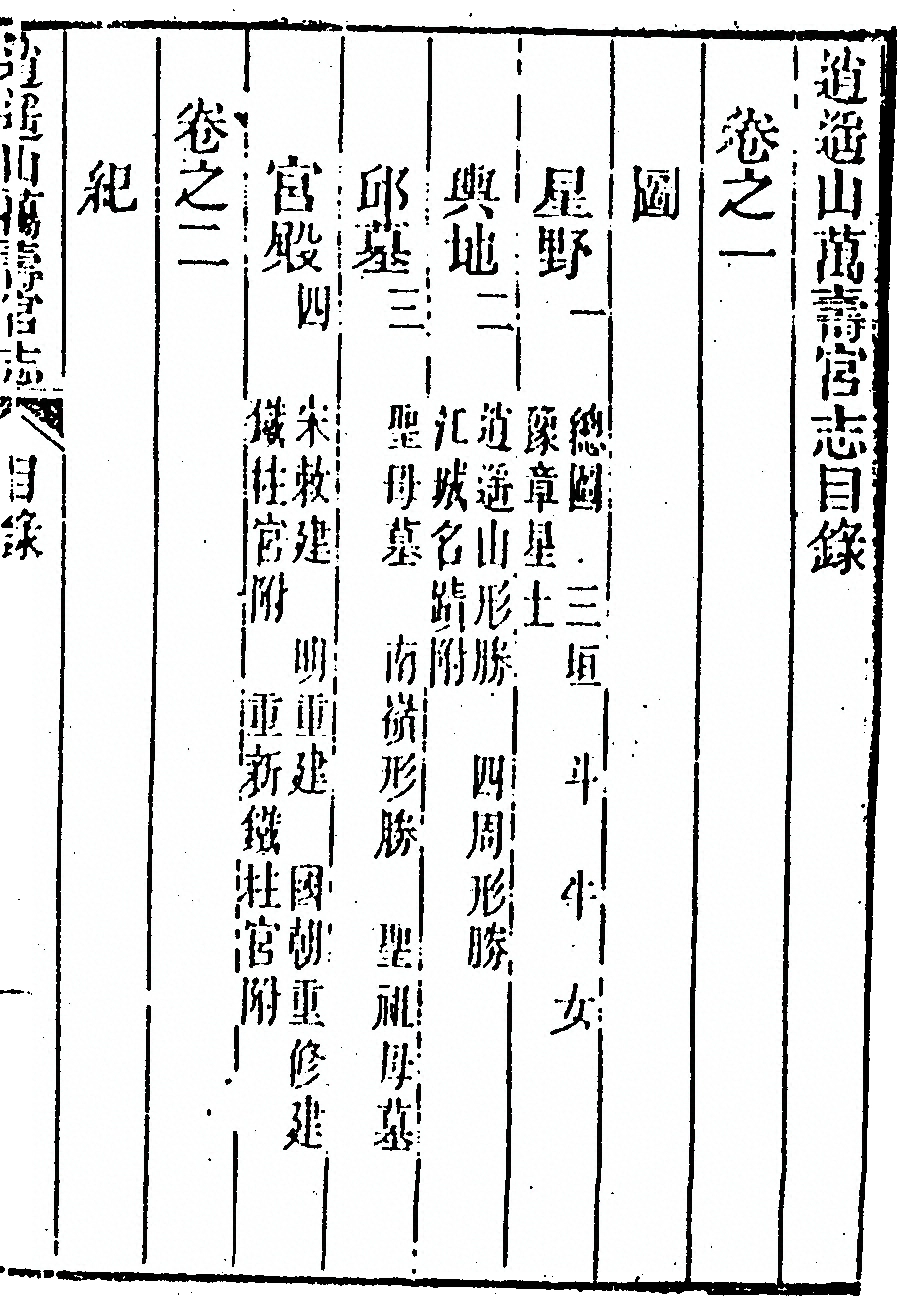 逍遙山萬壽宮志目錄
卷之一
圖
星野一
總圖 三垣 斗 牛 女
豫章星土
輿地二
逍遙山形勝 四周形勝
江城名蹟附
邱墓三
聖母墓 南嶺形勝 聖祖母墓
宮殿四
宋敕建 明重建 國朝重修建
鐵柱宮附 重新鐵柱宮附
卷之二
紀
逍遙山萬壽宮志 目錄 一